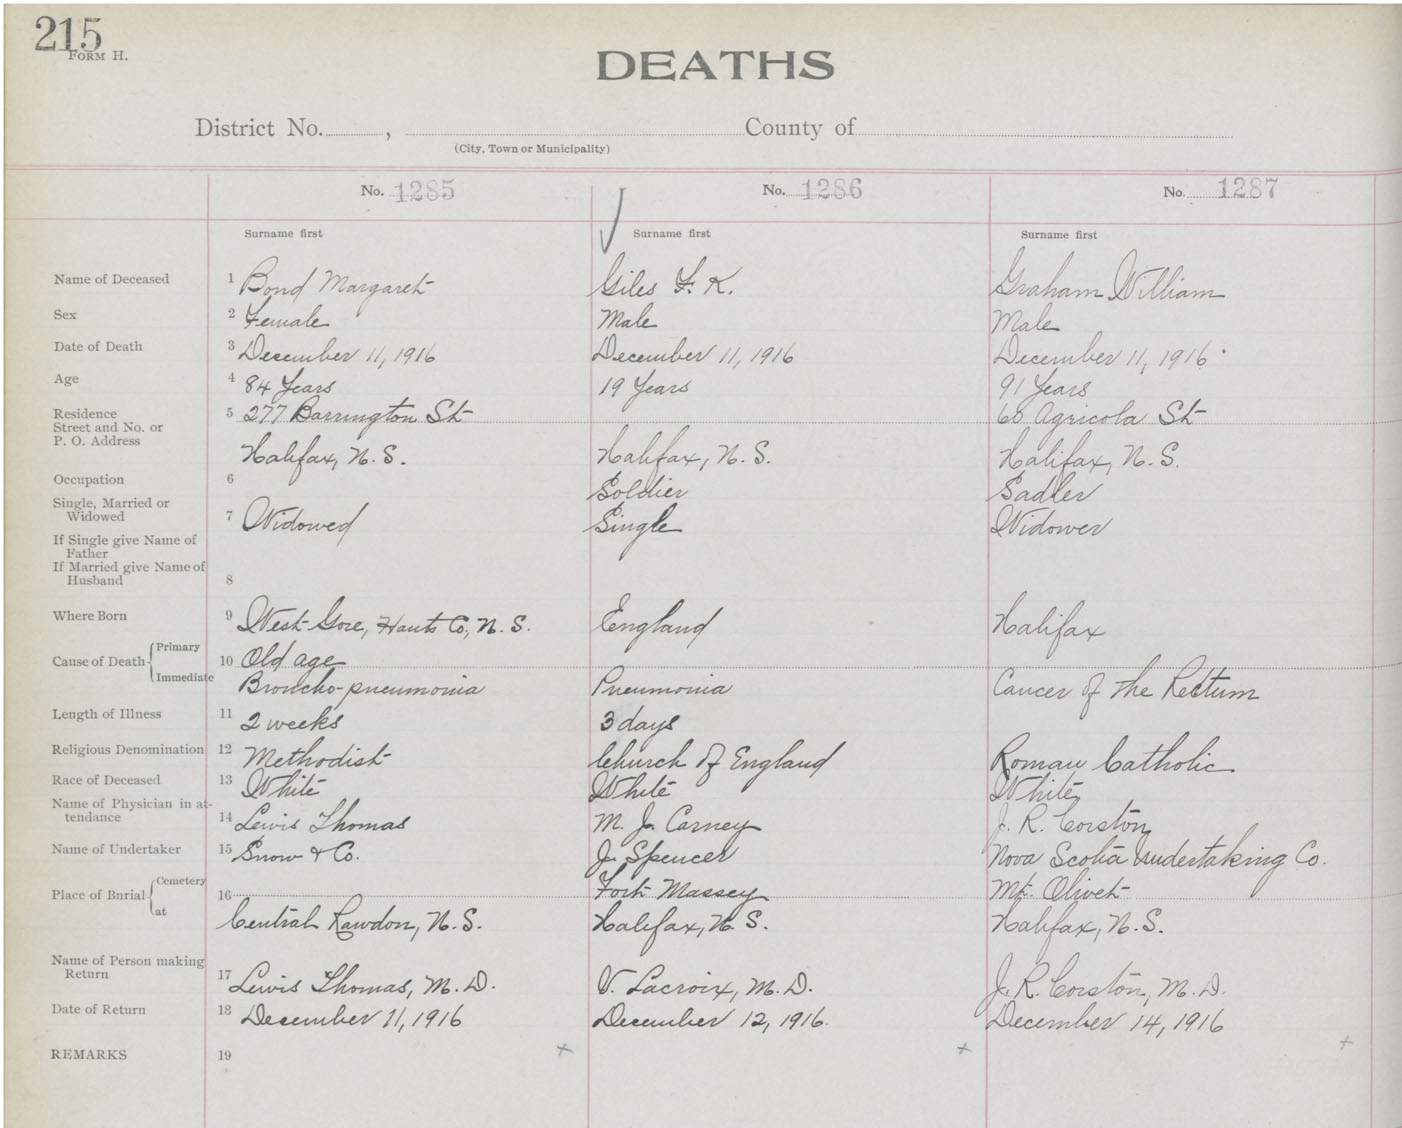 215
FORM H.
DEATHS
District No. , County of
(City, Town or Municipality)
No. 1285 No. 1286 No. 1287
Surname first Surname first Surname first
Name of Deceased 1 Bond Margaret Giles F. K. Graham William
Sex 2 Female Male Male
Date of Death 3 December 11, 1916 December 11, 1916 December 11, 1916
Age 4 84 Years 19 Years 91 Years
Residence 5 277 Barrington St 60 Agricola St
Street and No. or
P. O. Address Halifax, N. S. Halifax, N. S. Halifax, N. S.
Occupation 6 Soldier Sadler
Single, Married or
Widowed 7 Widowed Single Widower
If Single give Name of
Father
If Married give Name of
Husband 8
Where Born 9 West Gore, Hants Co, N. S. England Halifax
Cause of Death Primary 10 Old age
Immediate Broncho-pneumonia Pneumonia Cancer of the Rectum
Length of Illness 11 2 weeks 3 days
Religious Denomination 12 Methodist Church of England Roman Catholic
Race of Deceased 13 White White White
Name of Physician in at-
tendance 14 Lewis Thomas M. J. Carney J. R. Corston
Name of Undertaker 15 Snow & Co. J. Spencer Nova Scotia Undertaking Co.
Place of Bnrial Cemetery 16 Fort Massey Mt. Olivet
at Central Rawdon, N. S. Halifax, N. S. Halifax, N. S.
Name of Person making
Return 17 Lewis Thomas, M. D. V. Lacroix, M. D. J. R. Corston, M. D.
Date of Return 18 December 11, 1916 December 12, 1916. December 14, 1916
REMARKS 19 + + +